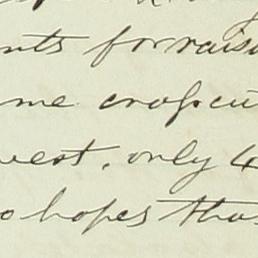 nts for raisi
me crop cu
west, only 4
o hopes tha